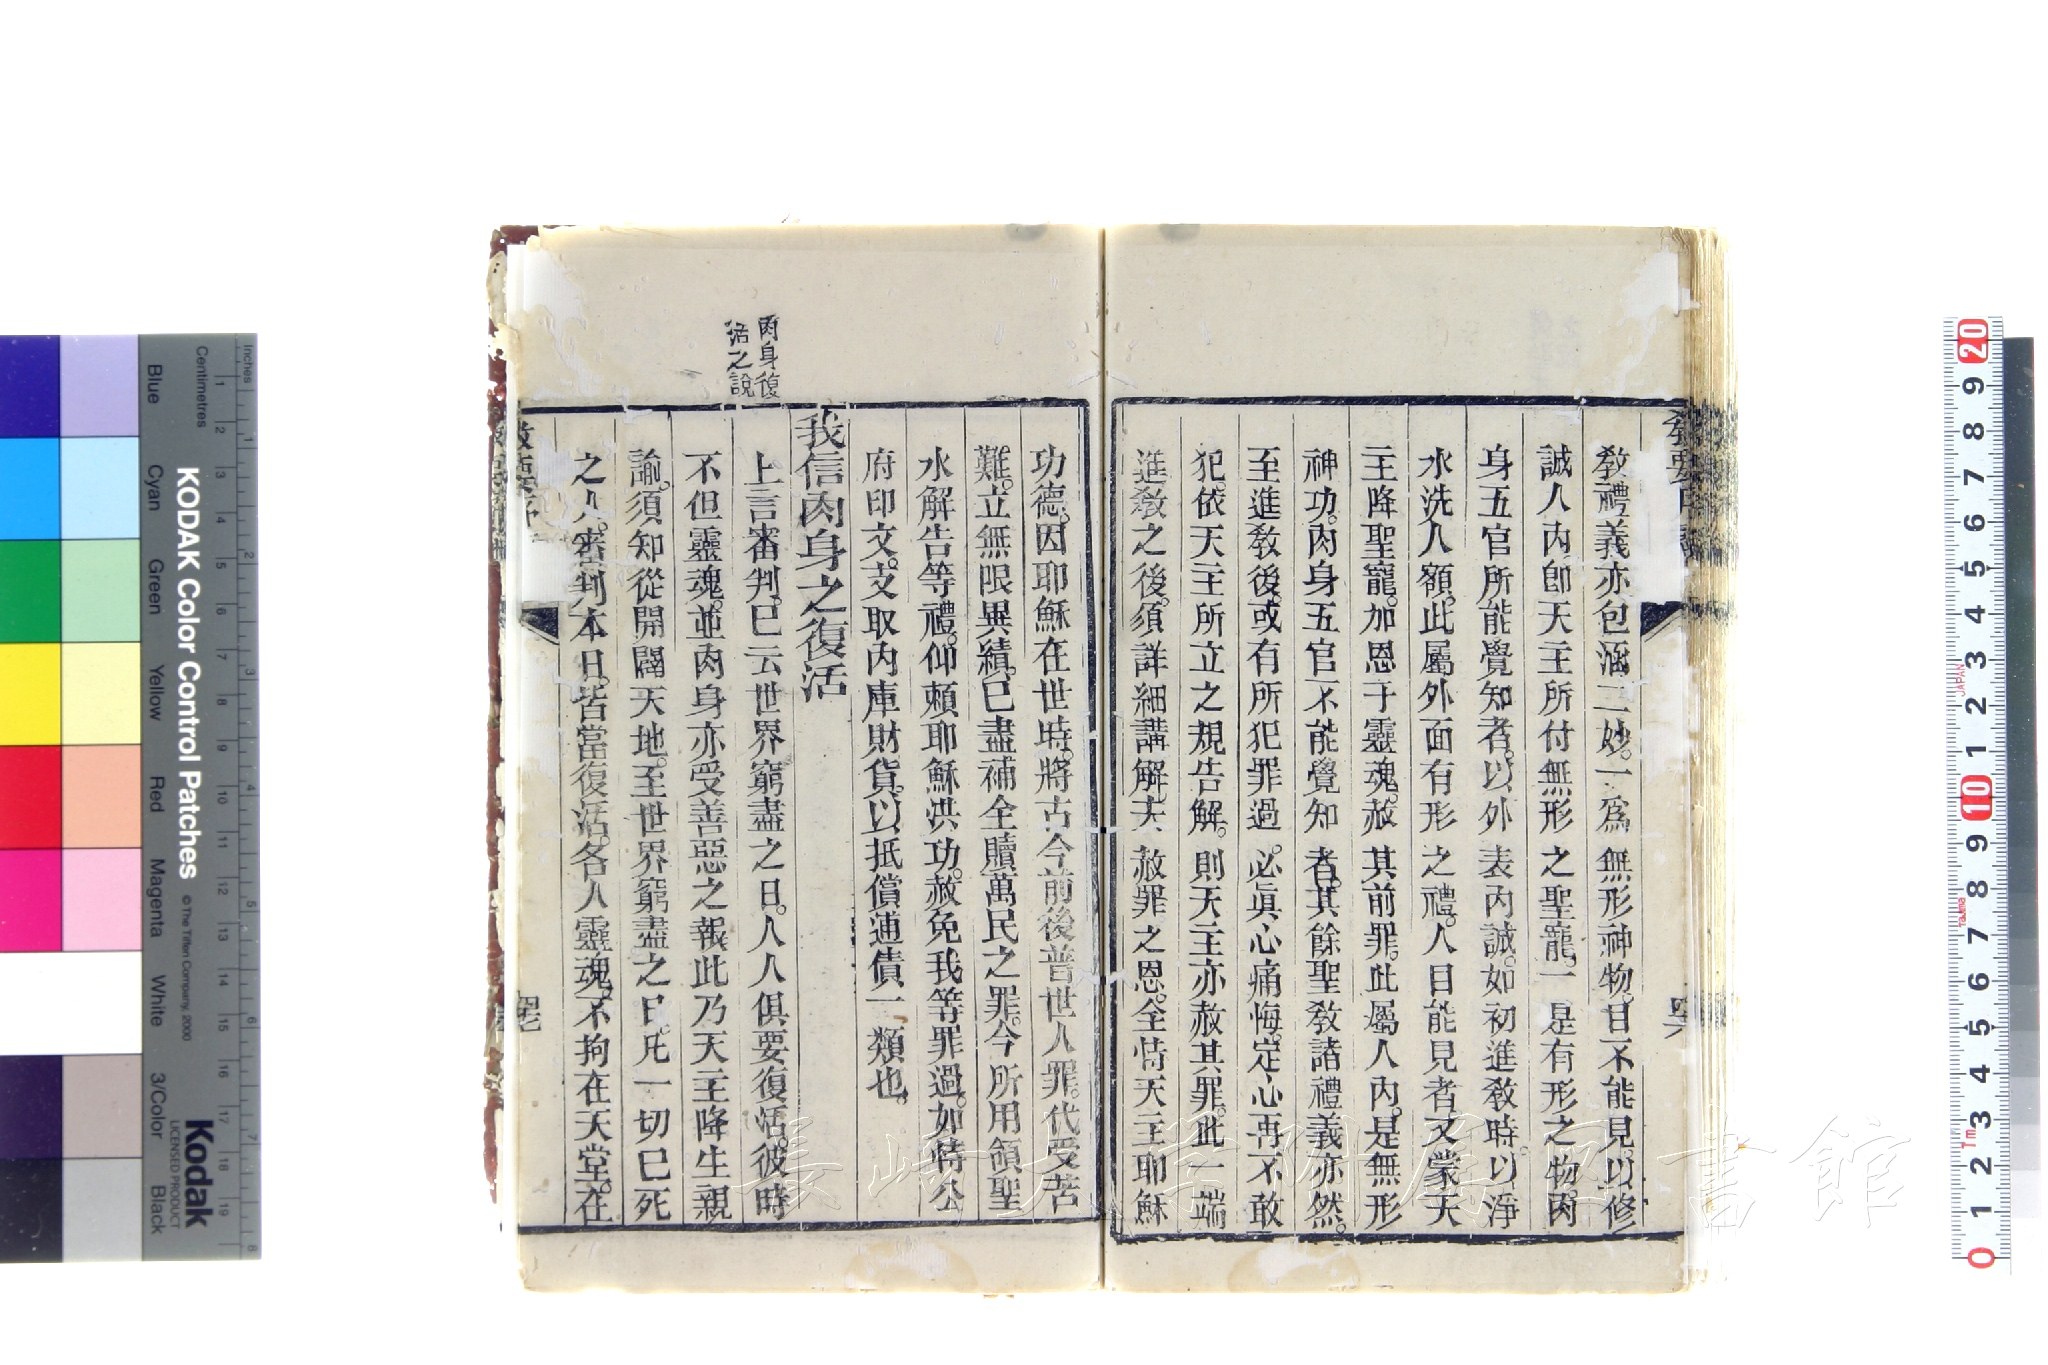 教禮義亦包涵二妙。一爲無形神物。目不能見。以修
誠人內卽天主所付無形之聖寵。一是有形之物。肉
身五官所能覺知者。以外表內誠。如初進敎時。以淨
水洗人額。此屬外面有形之禮。人目能見者。又蒙天
主降聖寵。加恩于靈魂。赦其前罪。此屬人內。是無形
神功。肉身五官不能覺知者。其餘聖敎諸禮義亦然。
至進敎後。或有所犯罪過。必眞心痛悔。定心再不敢
犯。依天主所立之規告解。則天主亦赦其罪。此一端
進敎之後。須詳細講解。夫赦罪之恩。全恃天主耶穌
四六
功德。因耶穌在世時。將古今前後普世人罪。代受苦
難。立無限異績。已盡補全贖萬民之罪。今所用領聖
水解告等禮。仰賴耶穌洪功。赦免我等罪過。如恃公
府印文。支取內庫財貨。以抵償逋債一類也。
我信肉身之復活
肉身復
活之說
上言審判。已云世界窮盡之日。人人俱要復活。彼時
不但靈魂。並肉身亦受善惡之報。此乃天主降生親
諭。須知從開闢天地。至世界窮盡之日。凡一切已死
之人。審判本日。皆當復活。各人靈魂。不拘在天堂。在
四七
KODAK Color Control Patches
© The Tiffen Company, 2000
Kodak
LICENSED PRODUCT
Inches
Centimetres
Blue
Cyan
Green
Yellow
Red
Magenta
White
3/Color
Black
長崎大學附屬圖書館
JAPAN